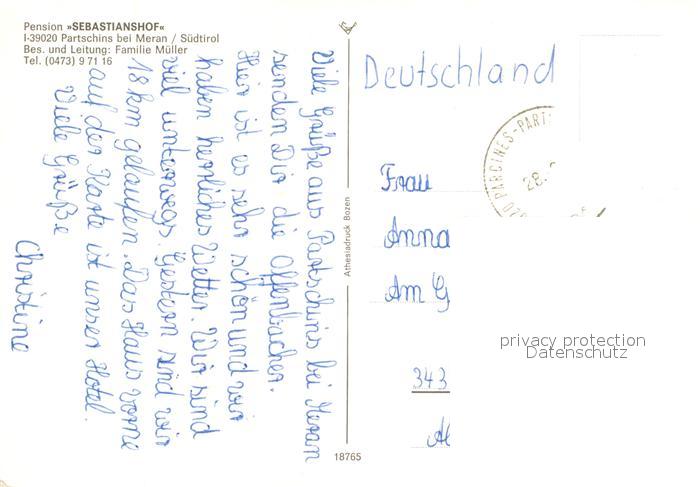 Pension »SEBASTIANSHOF«
I-39020 Partschins bei Meran / Südtirol
Bes. und Leitung: Familie Müller
Tel. (0473) 9 71 16
Viele Grüße aus Partschins bei Meran
senden Dir die Offenbacher.
Hier ist es sehr schön und wir
haben herrliches Wetter. Wir sind
viel unterwegs. Gestern sind wir
18 km gelaufen. Das Haus vorne
auf der Karte ist unser Hotel.
Viele Grüße
Christine
Athesiadruck Bozen
18765
Deutschland
PARCINES-PART
28.
Frau
Anna
Am G
343
privacy protection
Datenschutz